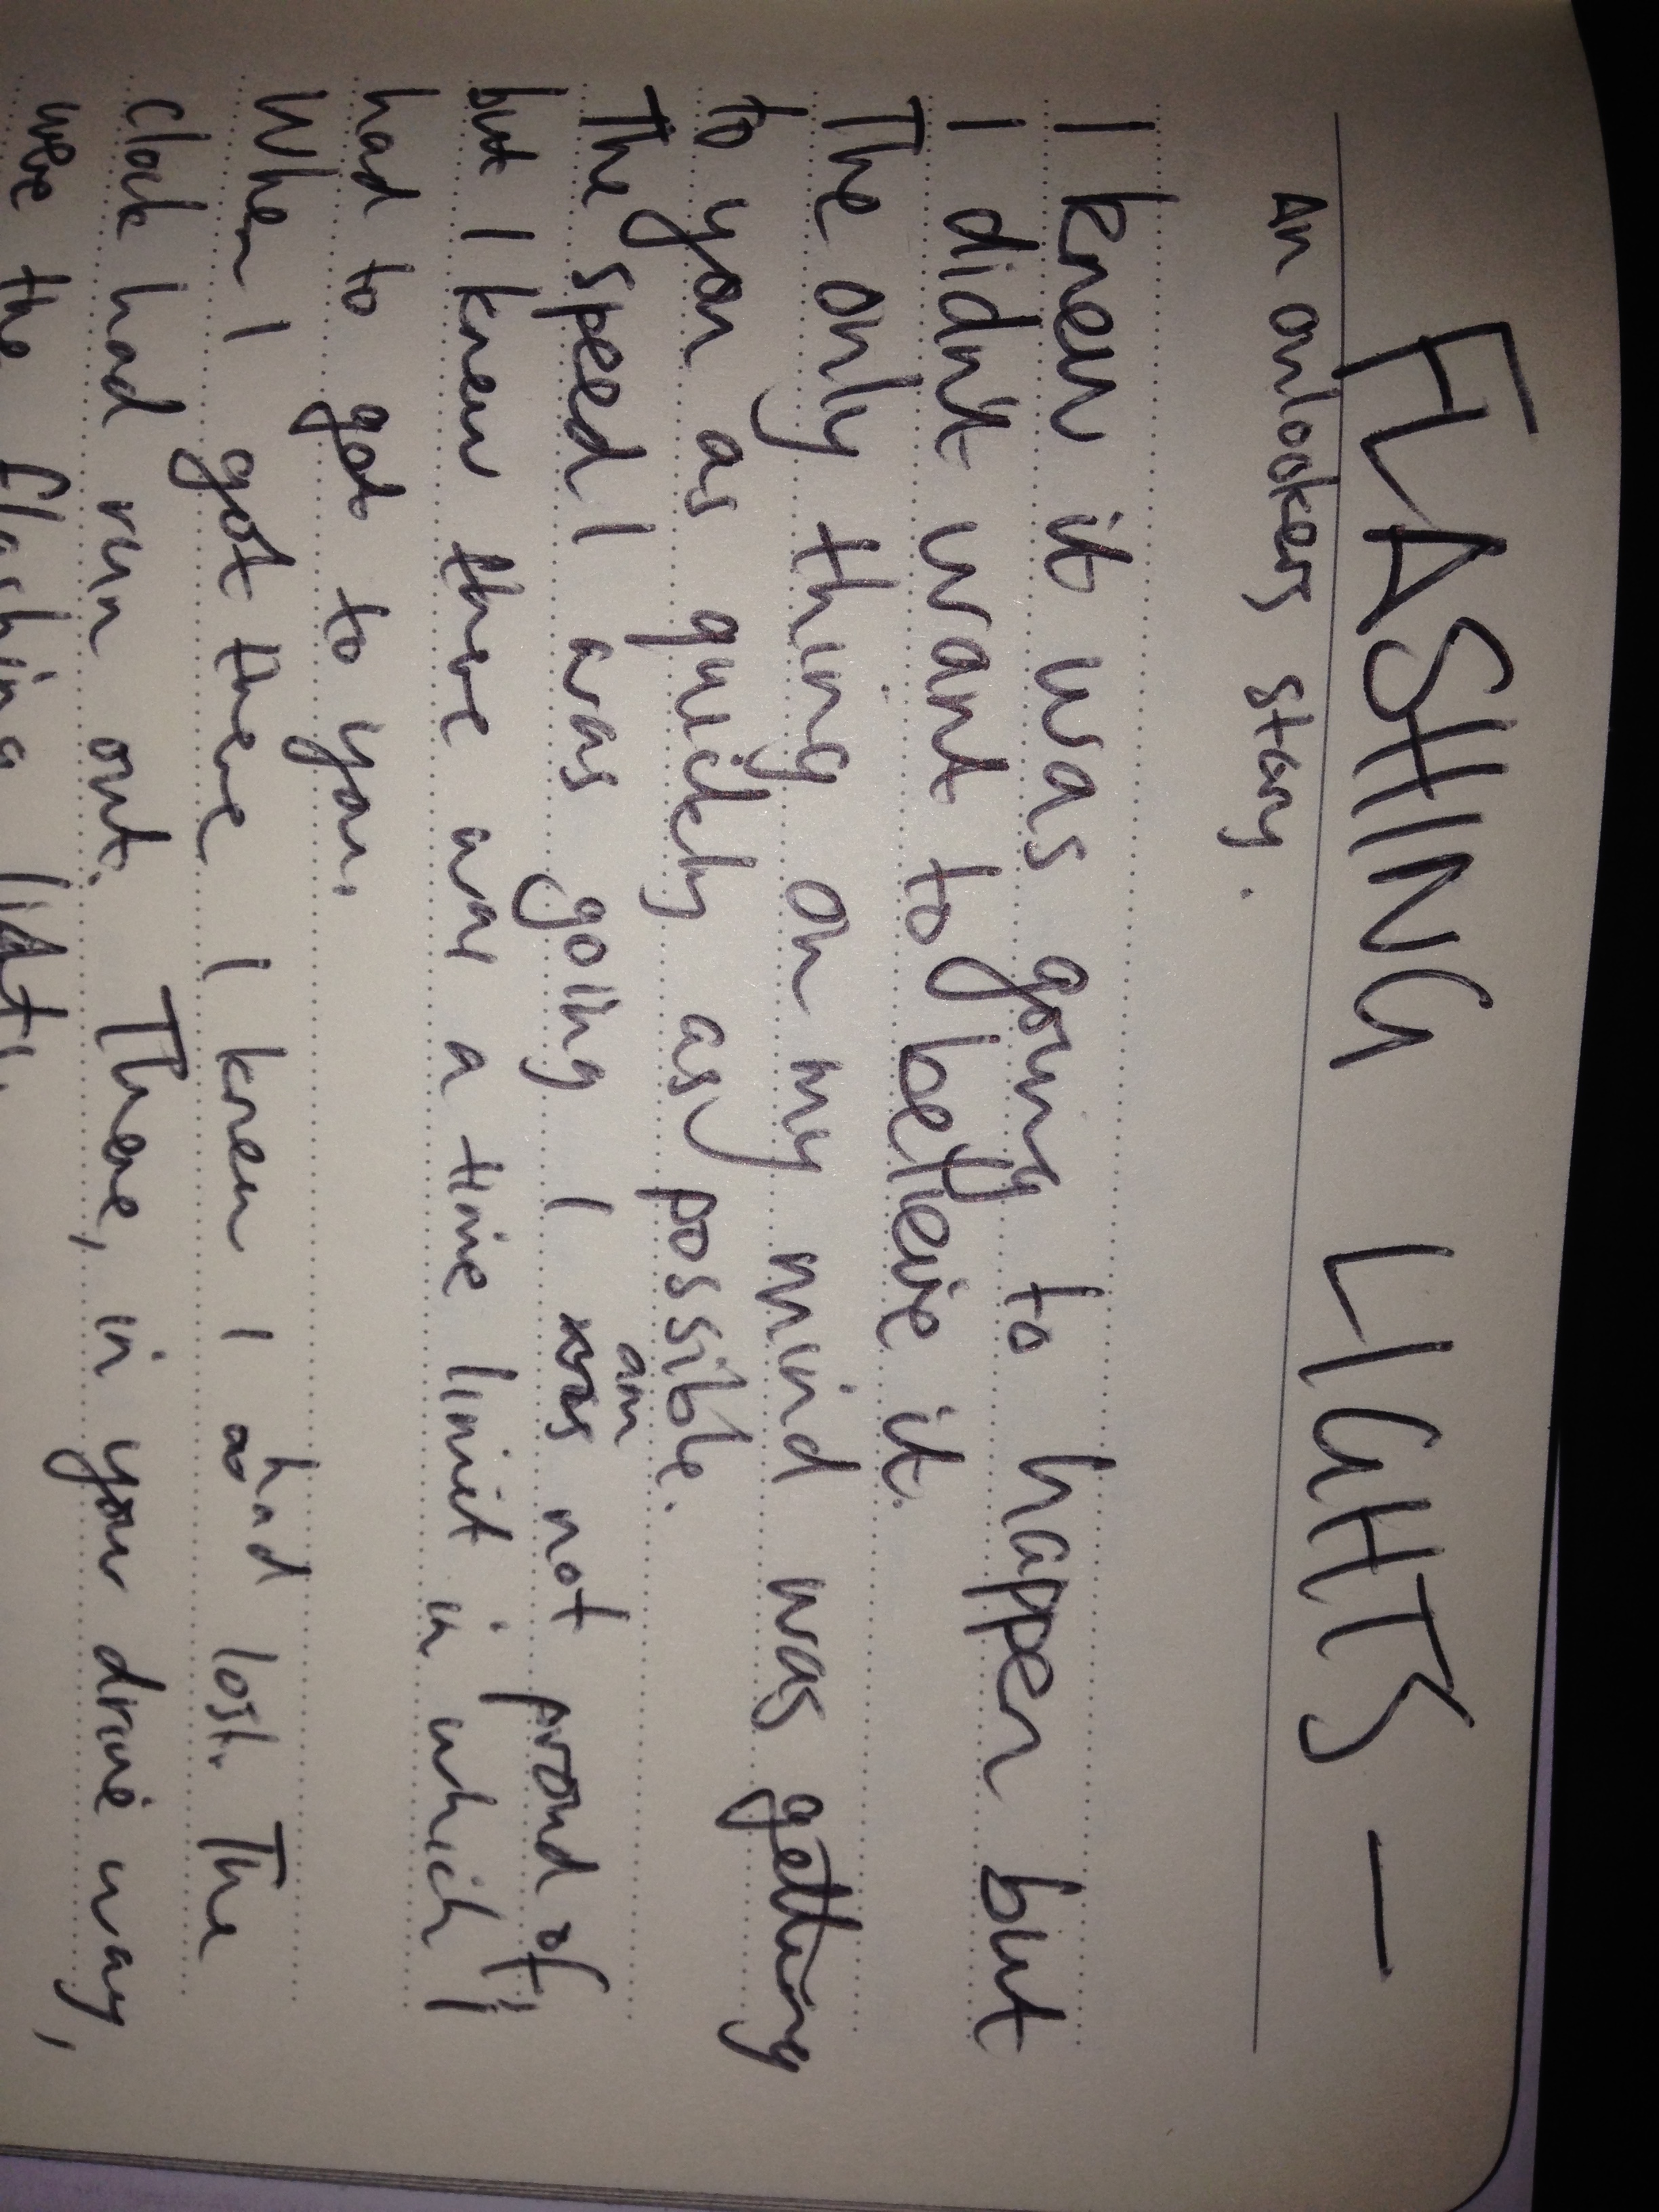 FLASHING LIGHTS —
An onlookers story.
I knew it was going to happen but
I didn't want to believe it.
The only thing on my mind was getting
to you as quickly as possible.
The speed I was going I was am not proud of
but I knew there was a time limit in which I
had to get to you.
When I got there I knew I had lost. The
clock had run out. There, in your drive way,
were the flashing lights.